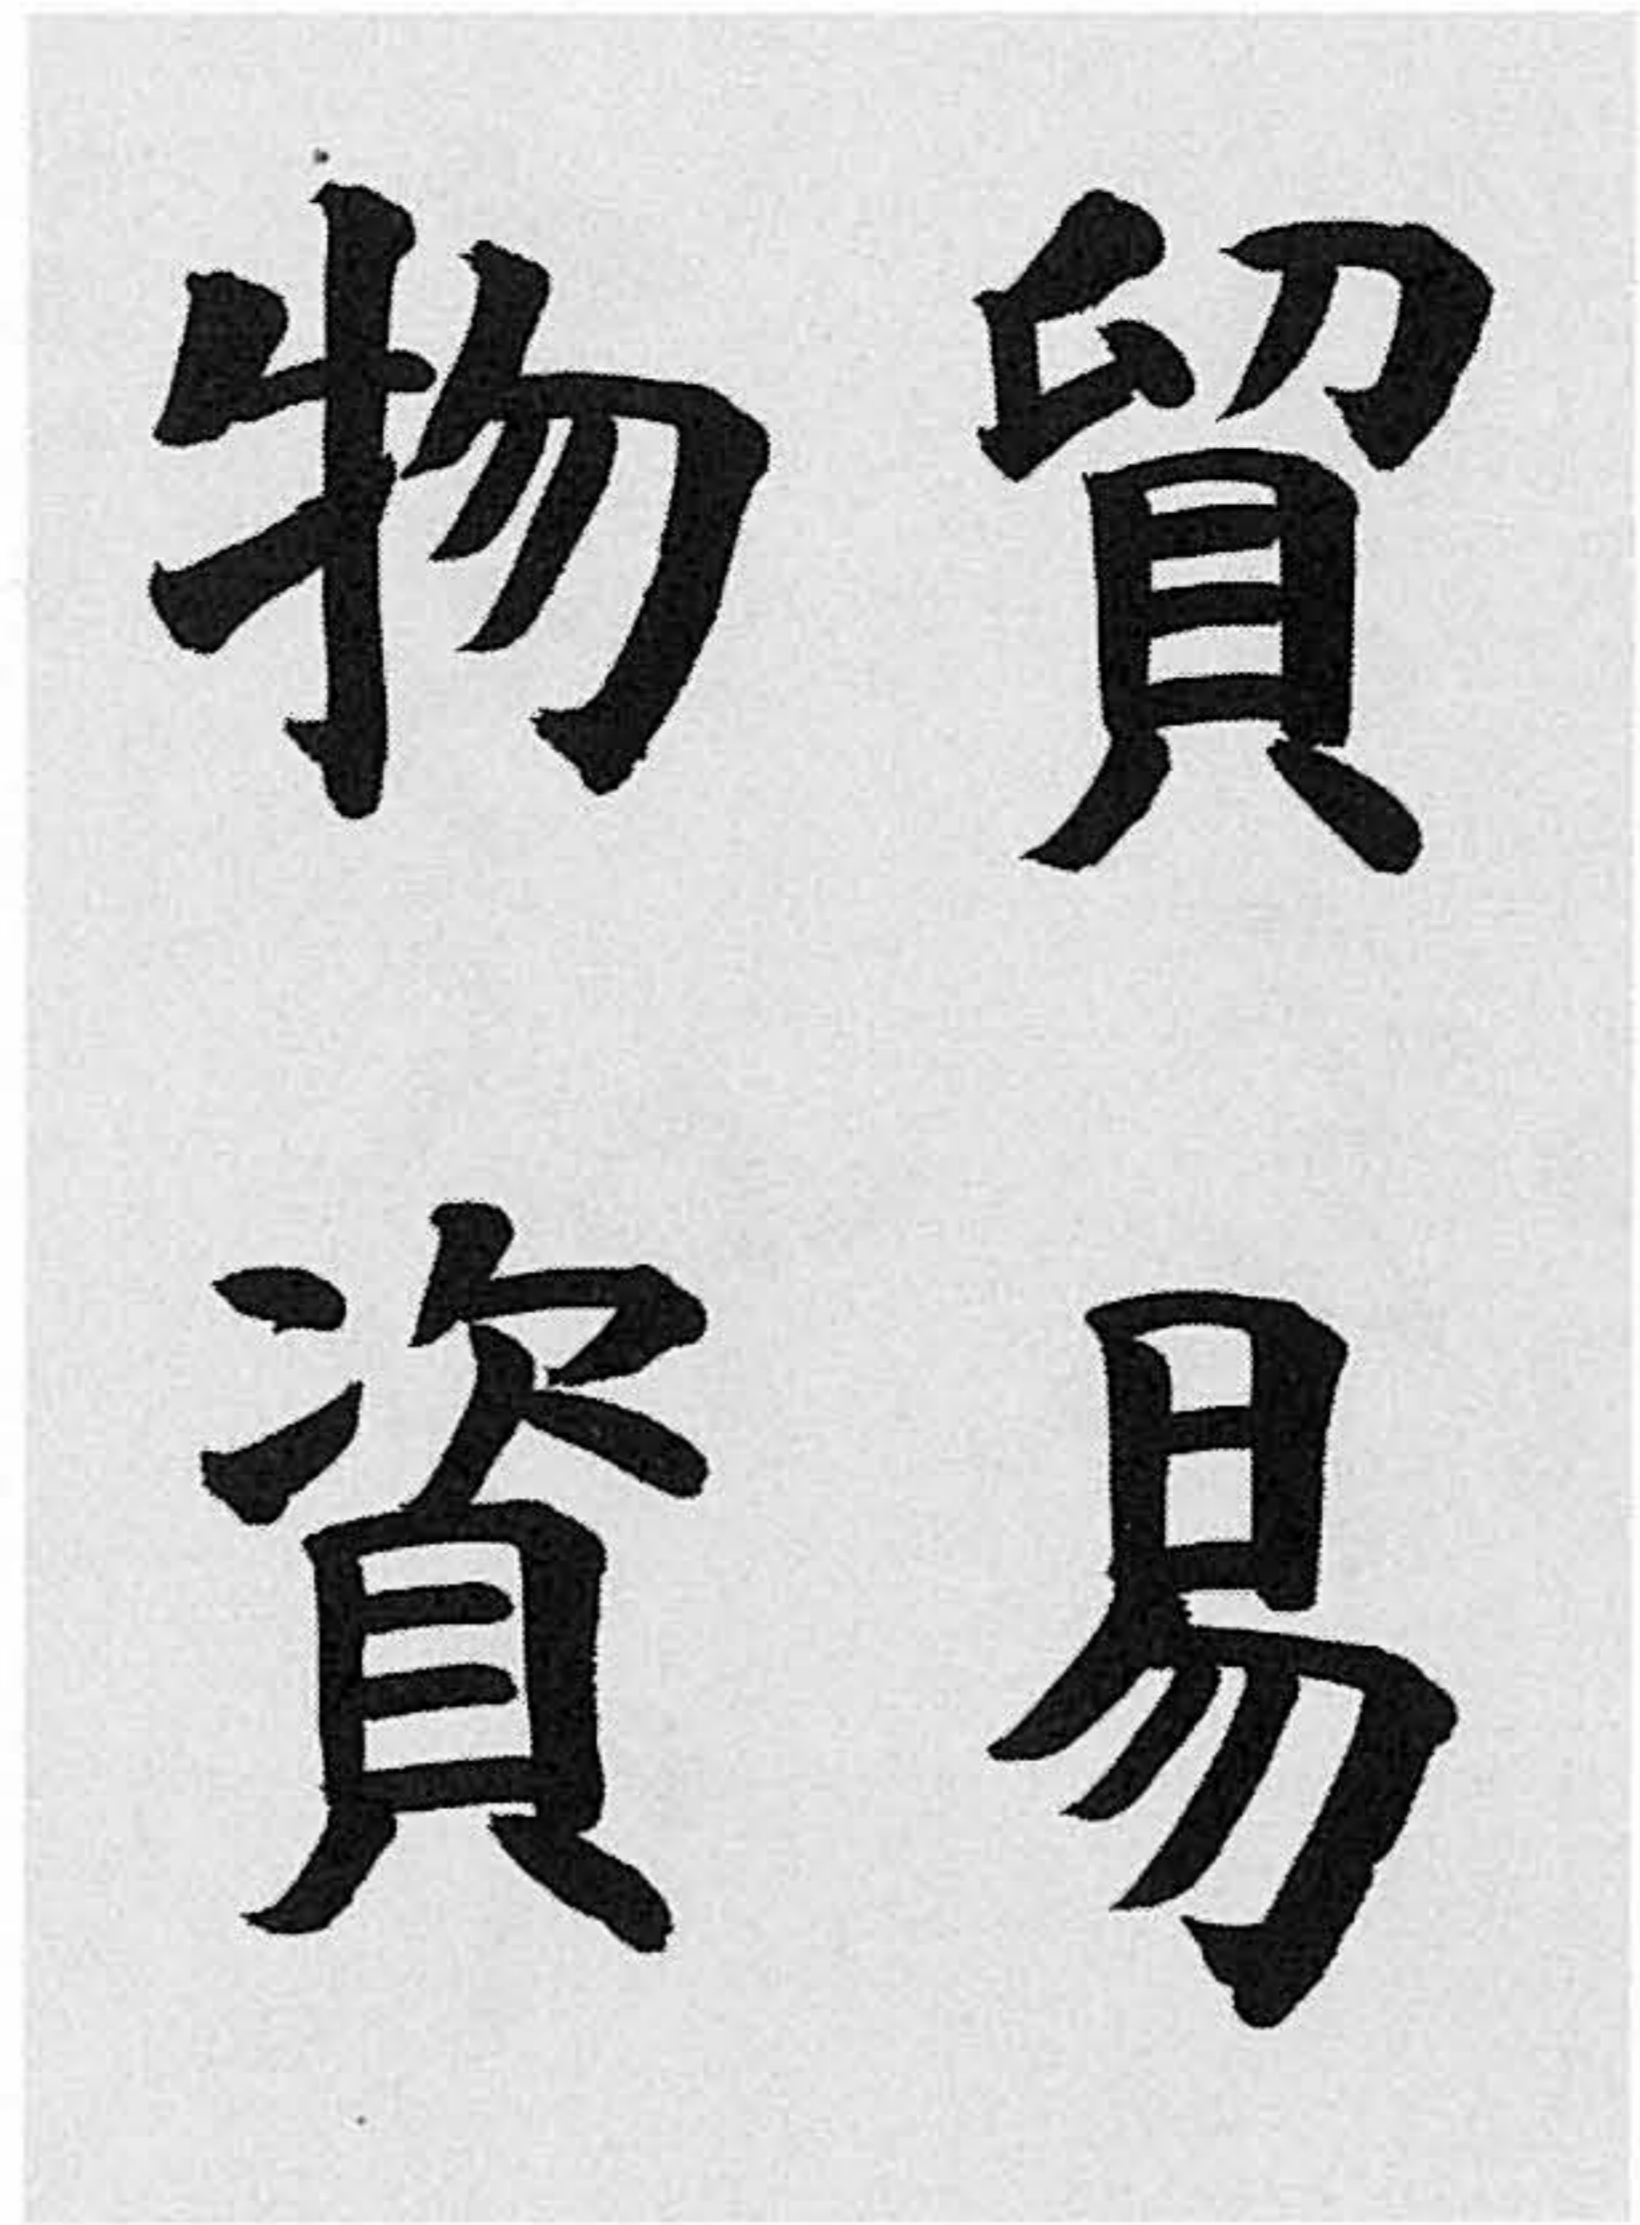 貿易
物資